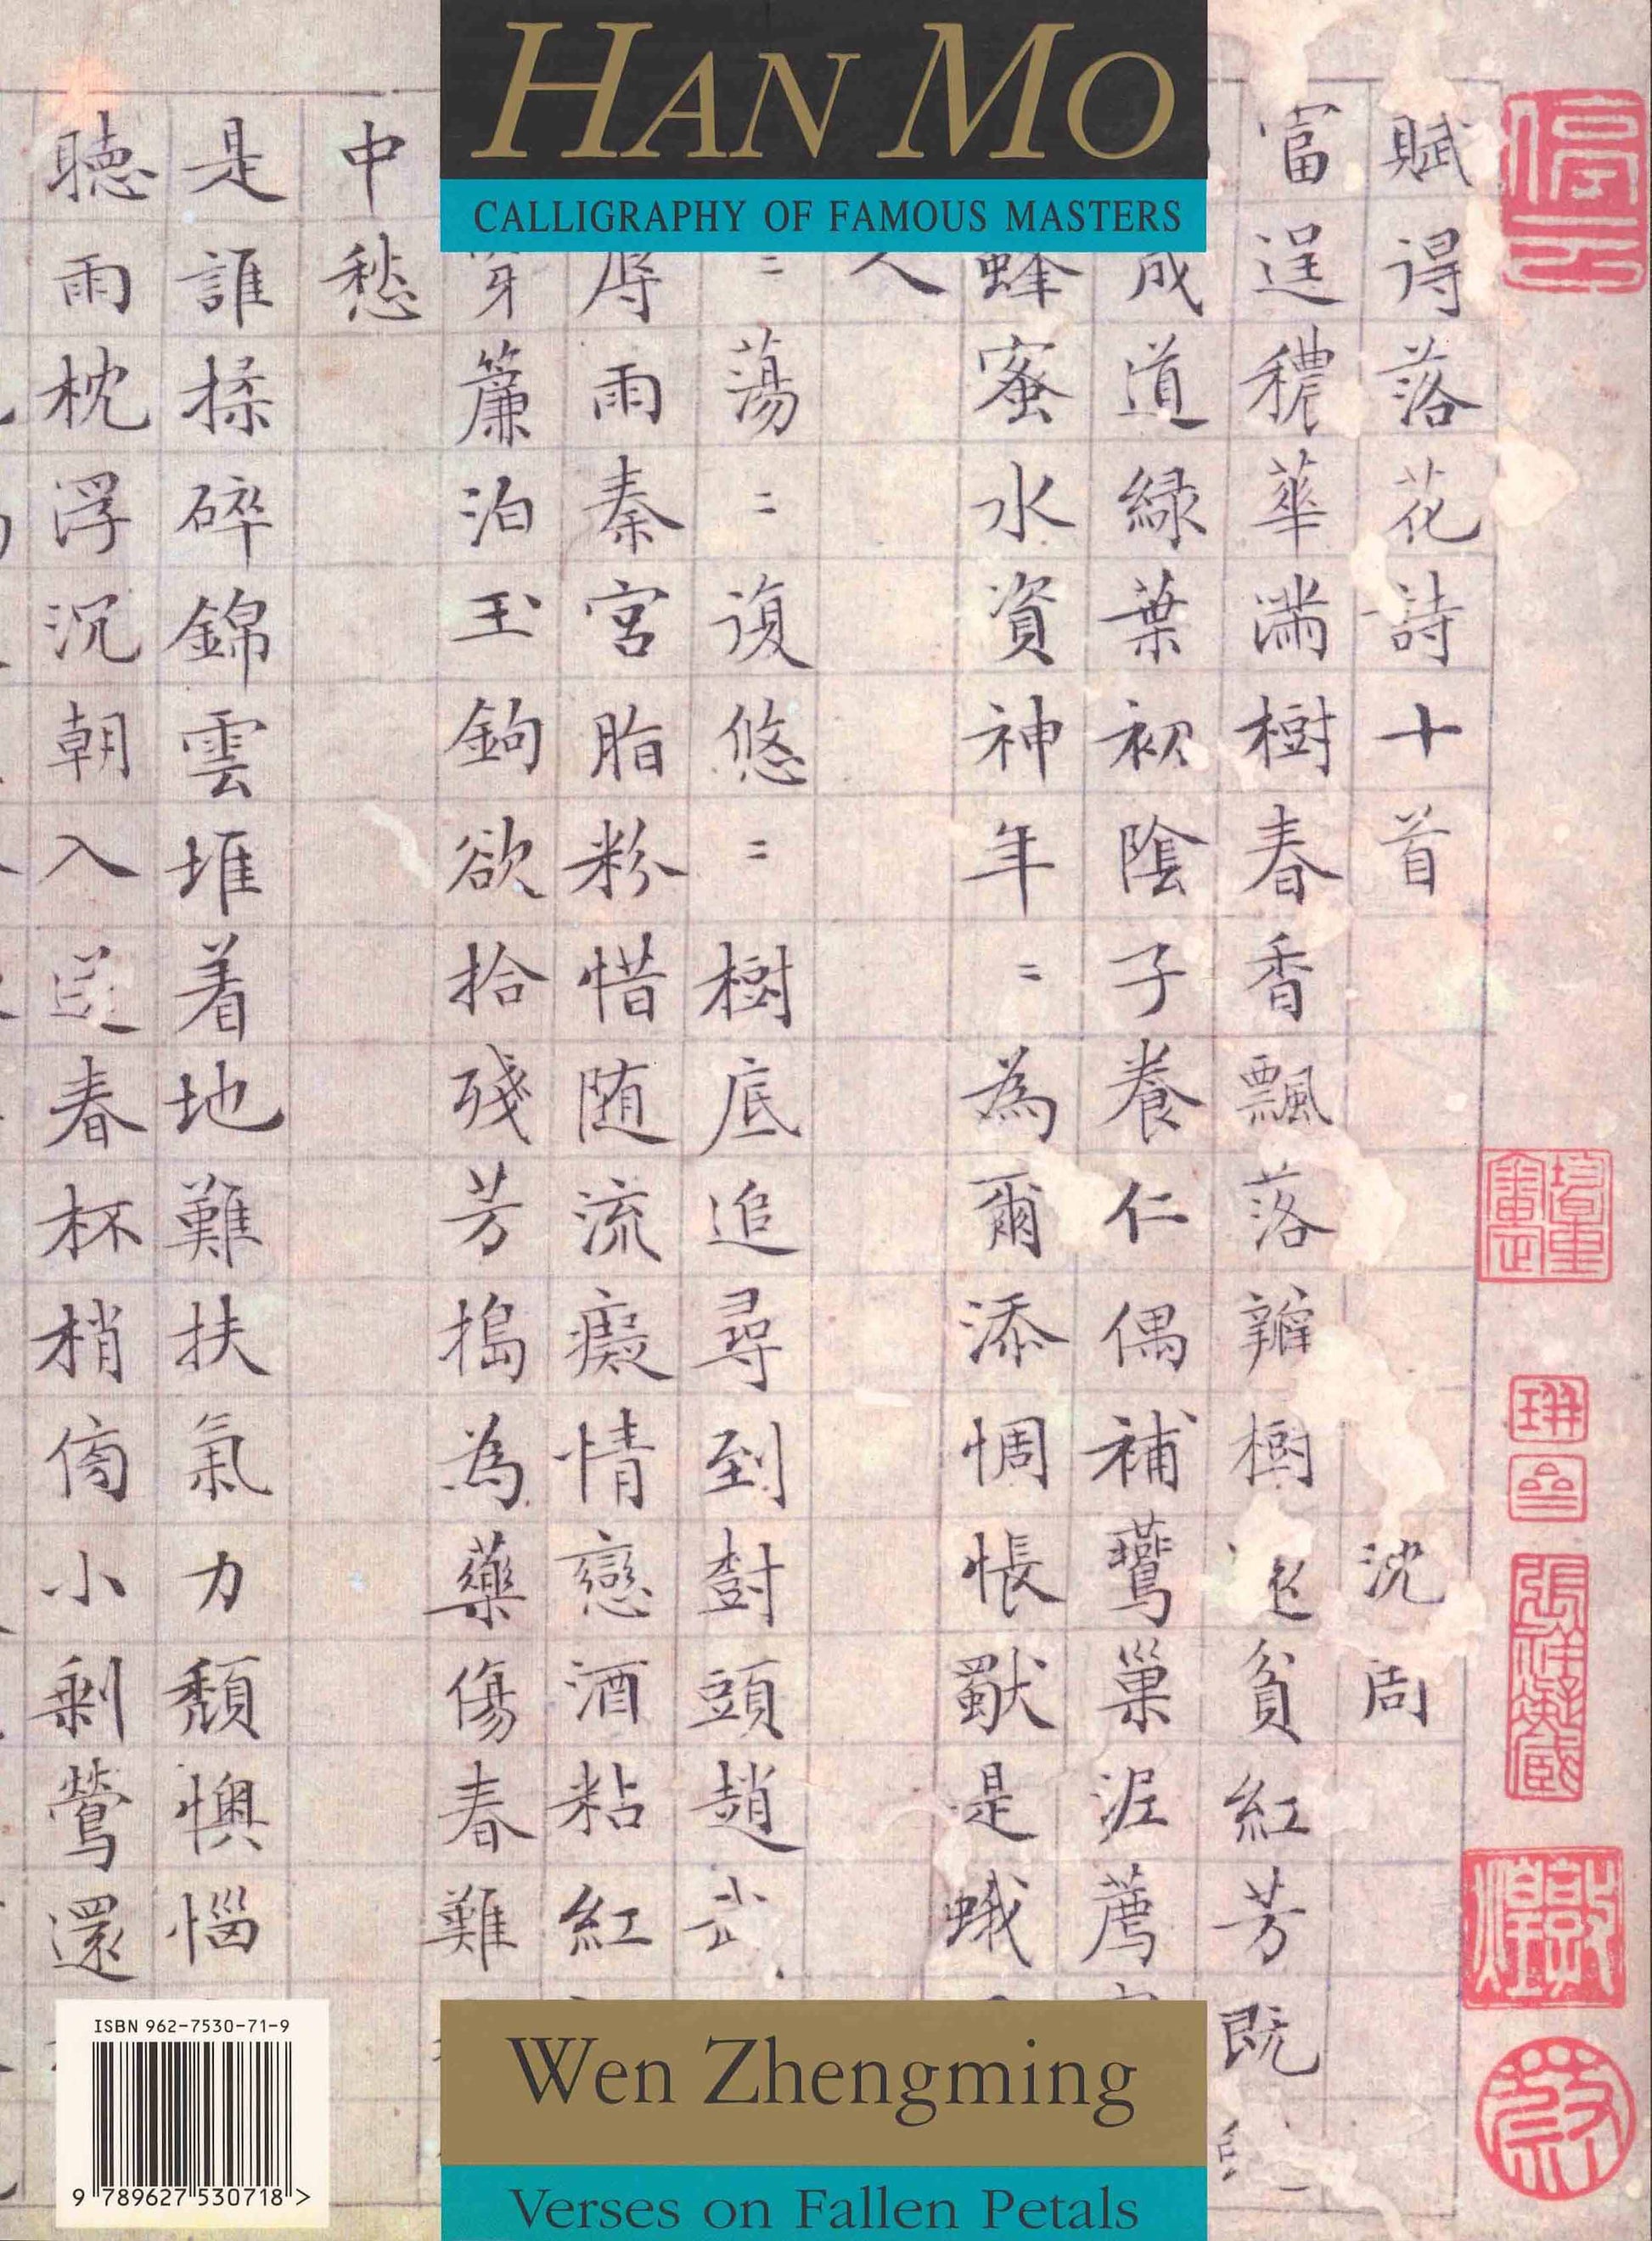 HAN MO
CALLIGRAPHY OF FAMOUS MASTERS
賦得落花詩十首 沈周
富逞穠華滿樹春香飄落瓣樹貧紅芳既
成道綠葉初陰子養仁偶補鷰巢泥薦
蜂蜜水資神年=為爾添惆悵獨是蛾
人
=蕩=復悠=樹底追尋到樹頭趙武
辱雨秦宮脂粉惜随流癡情戀酒粘紅
穿簾泊玉鉤欲拾殘芳搗為藥傷春難
中愁
是誰揉碎錦雲堆着地難扶氣力頹懊惱
聽雨枕浮沉朝入送春杯梢傍小剩鶯還
張祥凝藏
敦煌
ISBN 962-7530-71-9
9 789627 530718 >
Wen Zhengming
Verses on Fallen Petals